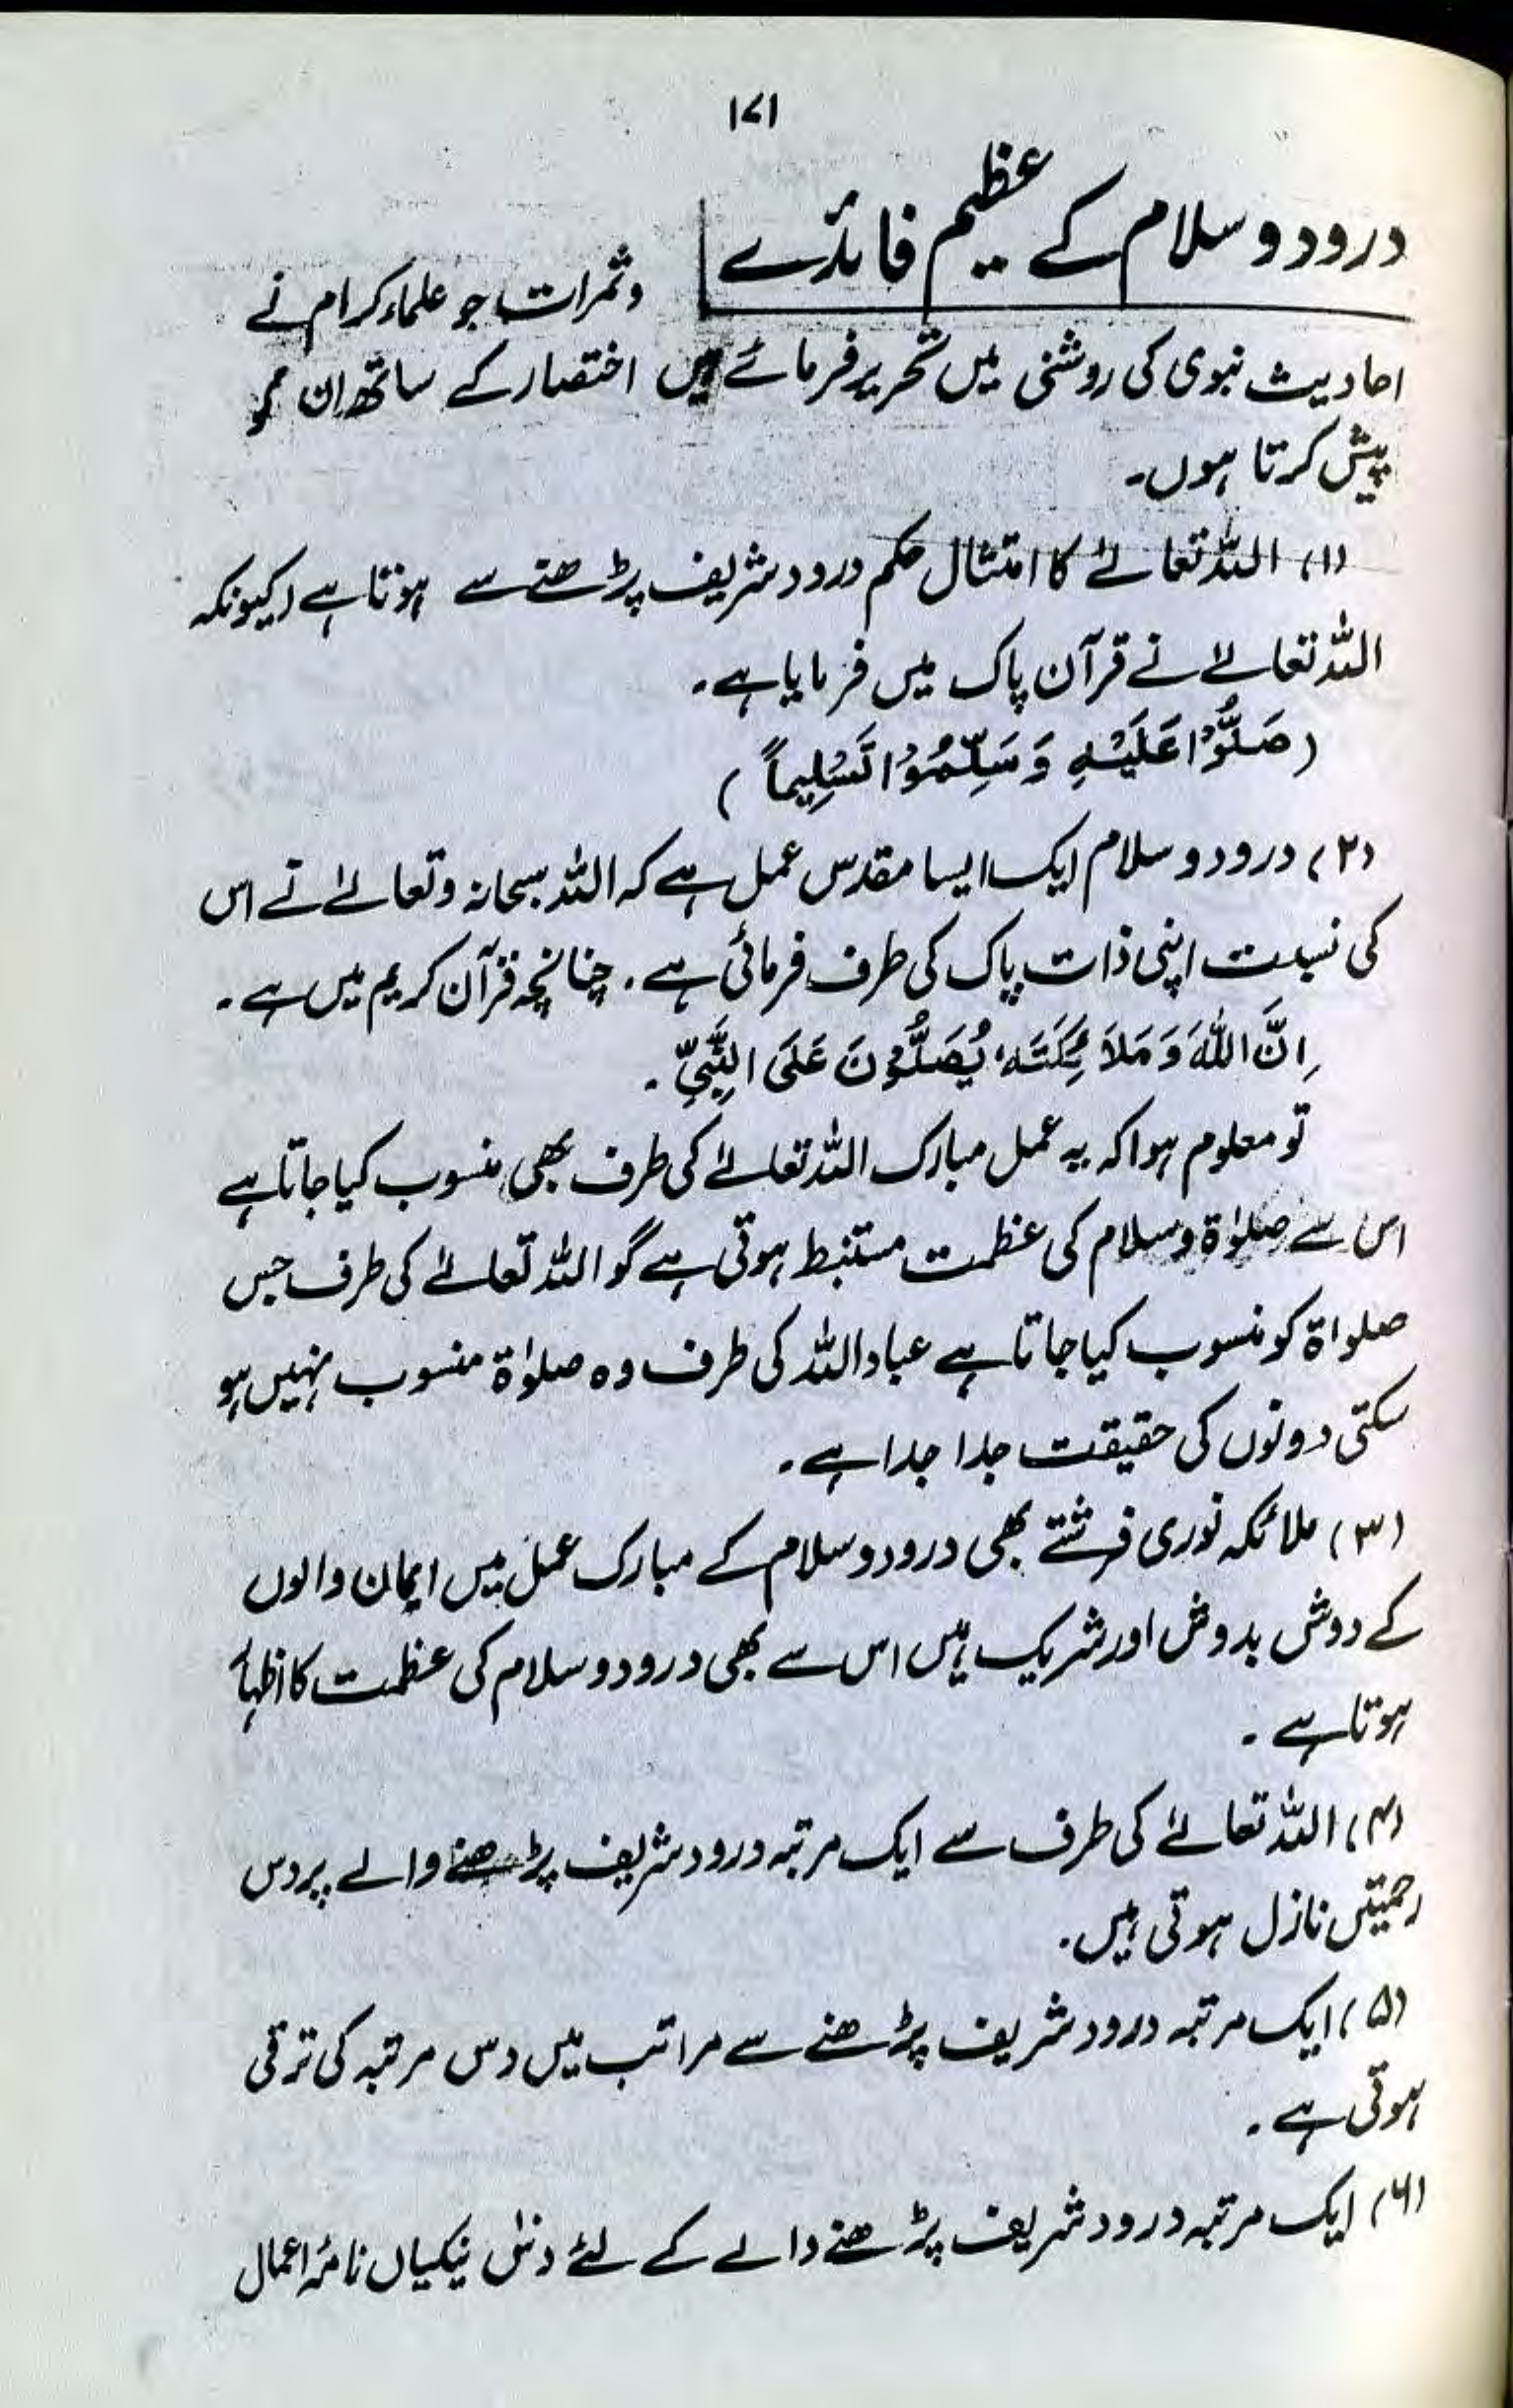 ۱۷۱
درود و سلام کے عظیم فائدے
و ثمرات جو علماء کرام نے
احادیث نبوی کی روشنی میں تحریر فرمائے ہیں اختصار کے ساتھ ان کو
پیش کرتا ہوں۔
(۱) اللہ تعالےٰ کا امتثال حکم درود شریف پڑھنے سے ہوتا ہے (کیونکہ
اللہ تعالےٰ نے قرآن پاک میں فرمایا ہے۔
(صَلُّوْا عَلَيْهِ وَ سَلِّمُوْا تَسْلِيماً)
(۲) درود و سلام ایک ایسا مقدس عمل ہے کہ اللہ سبحانہ وتعالےٰ نے اس
کی نسبت اپنی ذات پاک کی طرف فرمائی ہے۔ چنانچہ قرآن کریم میں ہے۔
اِنَّ اللّٰهَ وَ مَلَائِكَتَهٗ يُصَلُّوْنَ عَلَى النَّبِيِّ۔
تو معلوم ہوا کہ یہ عمل مبارک اللہ تعالےٰ کی طرف بھی منسوب کیا جاتا ہے
اس سے صلوٰۃ وسلام کی عظمت مستنبط ہوتی ہے گو اللہ تعالےٰ کی طرف جس
صلواۃ کو منسوب کیا جاتا ہے عباداللہ کی طرف وہ صلوٰۃ منسوب نہیں ہو
سکتی دونوں کی حقیقت جدا جدا ہے۔
(۳) ملائکہ نوری فرشتے بھی درود و سلام کے مبارک عمل میں ایمان والوں
کے دوش بدوش اور شریک ہیں اس سے بھی درود و سلام کی عظمت کا اظہار
ہوتا ہے۔
(۴) اللہ تعالےٰ کی طرف سے ایک مرتبہ درود شریف پڑھنے والے پر دس
رحمیتں نازل ہوتی ہیں۔
(۵) ایک مرتبہ درود شریف پڑھنے سے مراتب میں دس مرتبہ کی ترقی
ہوتی ہے۔
(۶) ایک مرتبہ درود شریف پڑھنے والے کے لئے دس نیکیاں نامۂ اعمال